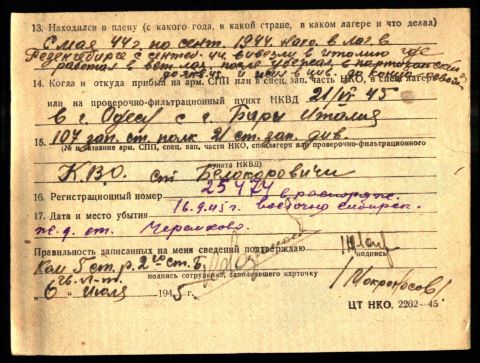 13. Находился в плену (с какого года, в какой стране, в каком лагере и что делал)
С мая 44 г. по сент. 1944 наход. в лаг. в
Регенсбурге с сентяб. 44 вывезли в Италию где
работал в после убежал в партизанский
14. Когда и откуда прибыл на арм. СПП или в спец. зап. часть НКО, в спец. лагерь
или на проверочно-фильтрационный пункт НКВД 21/VI 45
в г. Одесса с г. Бари Италия
15. 107 зап. ст. полк 21 ст. зап. див.
(№ и название арм. СПП, спец. зап. части НКО, спецлагеря или проверочно-фильтрационного
пункта НКВД)
К.В.О. ст. Белокоровичи
16. Регистрационный номер 25474 в распоряж.
17. Дата и место убытия 16.9.45 г. восточно сибирск.
ж. д. ст. Черемхово.
Правильность записанных на меня сведений подтверждаю
подпись
Ком 5 ст. р. 2го ст. б.
подпись сотрудника, заполнившего карточку
"6" Июля 1945 г.
Мокроносов
ЦТ НКО. 2262-45